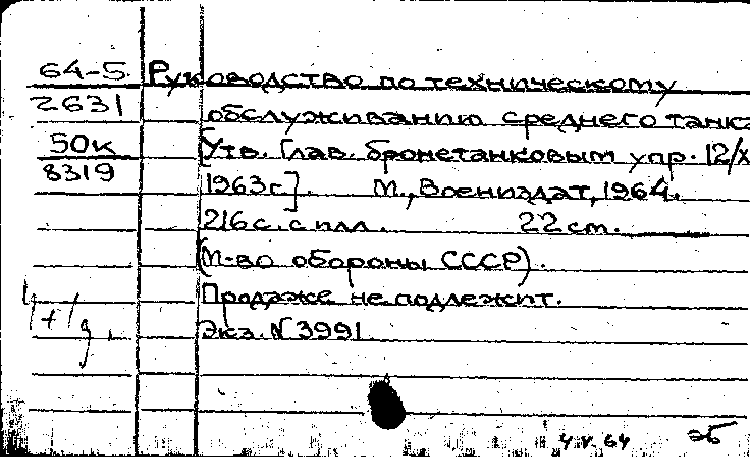 64-5 Руководство по техническому
2631 обслуживанию среднего танка
50к [Утв. Глав. бронетанковым упр. 12/X
8319 1963г]. М., Воениздат, 1964.
216 с. с илл. 22 см.
(М-во обороны СССР).
Продаже не подлежит.
Экз. N 3991
4 V 64